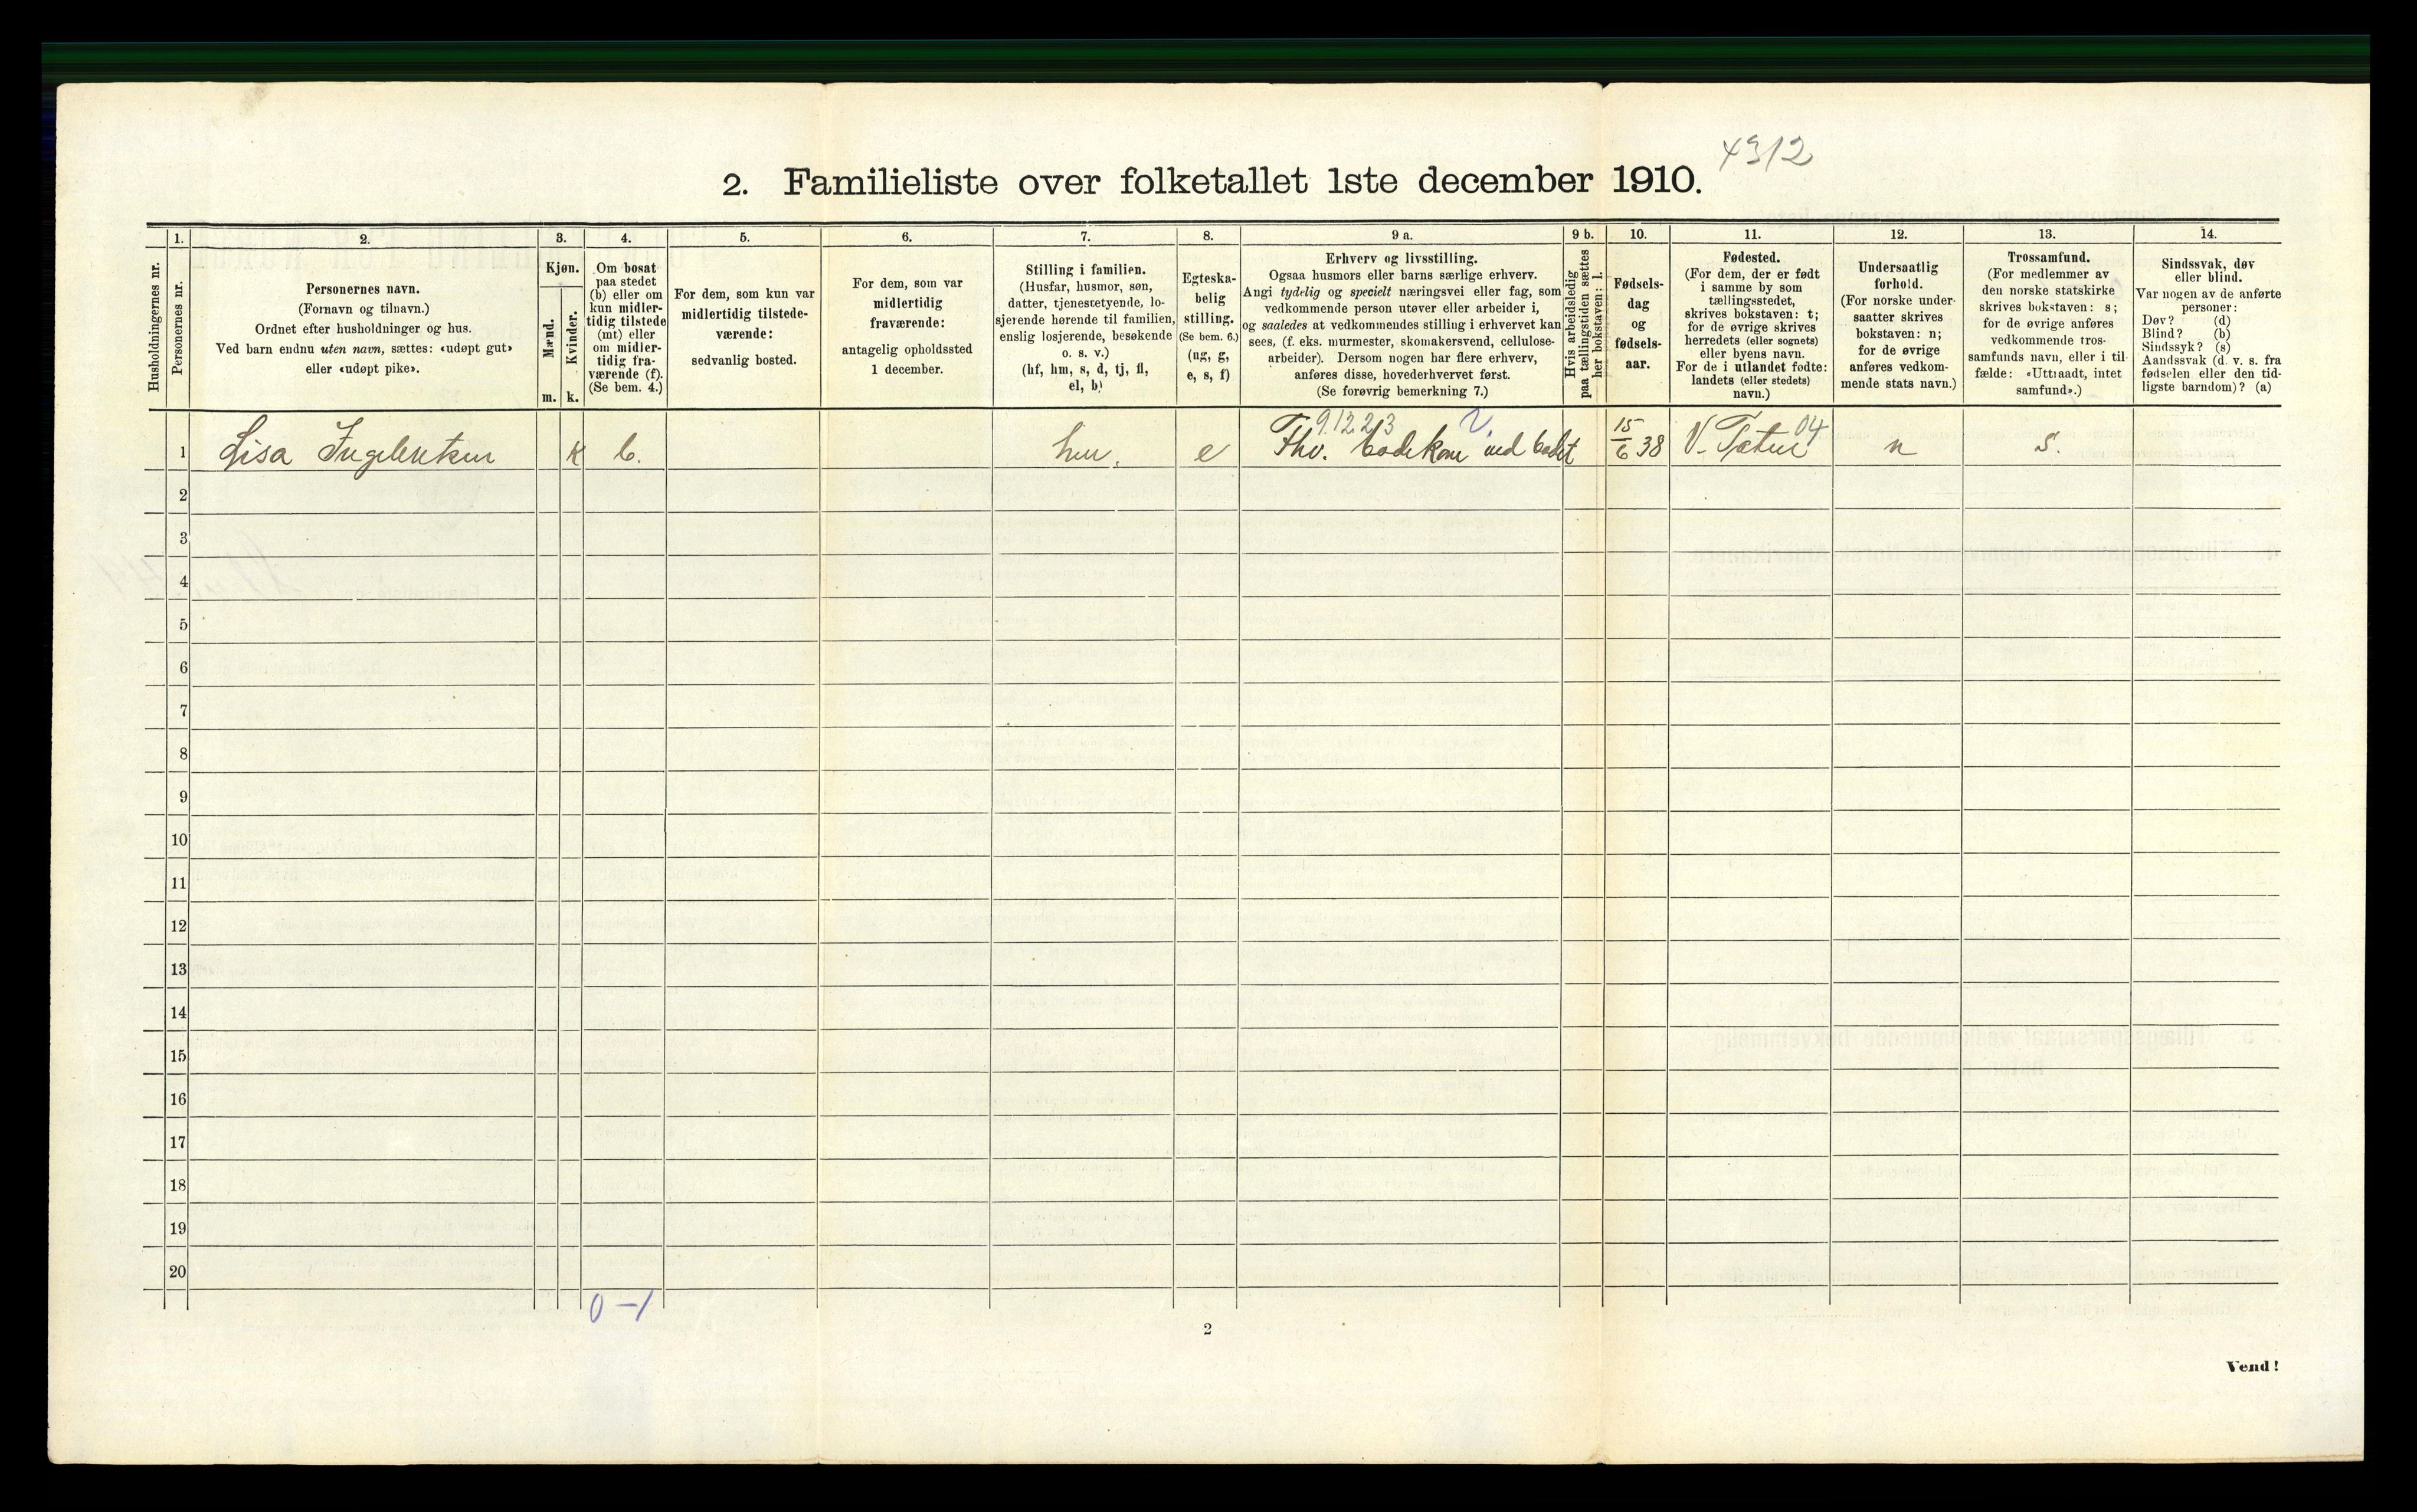 4312
2. Familieliste over folketallet 1ste december 1910.
Husholdningernes nr.
1.
Personernes nr.
2.
Personernes navn.
(Fornavn og tilnavn.)
Ordnet efter husholdninger og hus.
Ved barn endnu uten navn, sættes: «udøpt gut»
eller «udøpt pike».
3.
Kjøn.
Mænd.
Kvinder.
m. k.
4.
Om bosat
paa stedet
(b) eller om
kun midler-
tidig tilstede
(mt) eller
om midler-
tidig fra-
værende (f).
(Se bem. 4.)
5.
For dem, som kun var
midlertidig tilstede-
værende:
sedvanlig bosted.
6.
For dem, som var
midlertidig
fraværende:
antagelig opholdssted
1 december.
7.
Stilling i familien.
(Husfar, husmor, søn,
datter, tjenestetyende, lo-
sjerende hørende til familien,
enslig losjerende, besøkende
o. s. v.)
(hf, hm, s, d, tj, fl,
el, b)
8.
Egteska-
belig
stilling.
(Se bem. 6.)
(ug, g,
e, s, f)
9 a.
Erhverv og livsstilling.
Ogsaa husmors eller barns særlige erhverv.
Angi tydelig og specielt næringsvei eller fag, som
vedkommende person utøver eller arbeider i,
og saaledes at vedkommendes stilling i erhvervet kan
sees, (f. eks. murmester, skomakersvend, cellulose-
arbeider). Dersom nogen har flere erhverv,
anføres disse, hovederhvervet først.
(Se forøvrig bemerkning 7.)
9 b.
Hvis arbeidsledig
paa tællingstiden sættes
her bokstaven: l.
10.
Fødsels-
dag
og
fødsels-
aar.
11.
Fødested.
(For dem, der er født
i samme by som
tællingsstedet,
skrives bokstaven: t;
for de øvrige skrives
herredets (eller sognets)
eller byens navn.
For de i utlandet fødte:
landets (eller stedets)
navn.)
12.
Undersaatlig
forhold.
(For norske under-
saatter skrives
bokstaven: n;
for de øvrige
anføres vedkom-
mende stats navn.)
13.
Trossamfund.
(For medlemmer av
den norske statskirke
skrives bokstaven: s;
for de øvrige anføres
vedkommende tros-
samfunds navn, eller i til-
fælde: «Uttraadt, intet
samfund».)
14.
Sindssvak, døv
eller blind.
Var nogen av de anførte
personer:
Døv? (d)
Blind? (b)
Sindssyk? (s)
Aandssvak (d. v. s. fra
fødselen eller den tid-
ligste barndom)? (a)
9.12.23 04
1 Lisa Ingebretsen k b. hm. e Fhv. badekone ved badet 15/6 38 n s.
2
3
4
5
6
7
8
9
10
11
12
13
14
15
16
17
18
19
20
0 – 1
2
Vend!